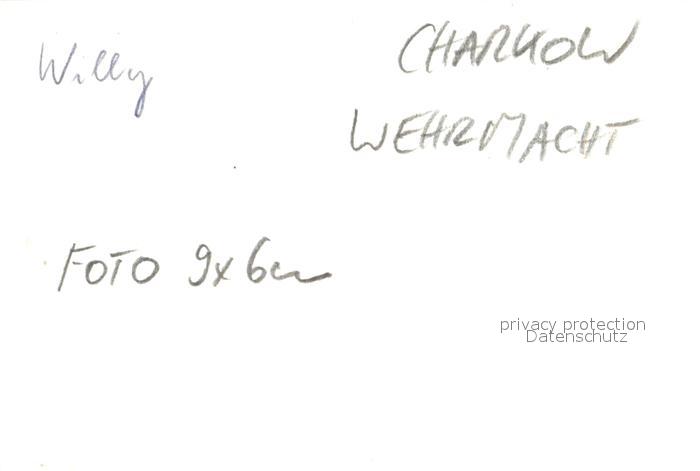 Willy
CHARKOW
WEHRMACHT
FOTO 9x6cm
privacy protection
Datenschutz